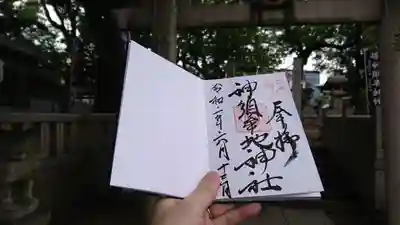 奉拝
神須牟地神社
令和二年六月十三日